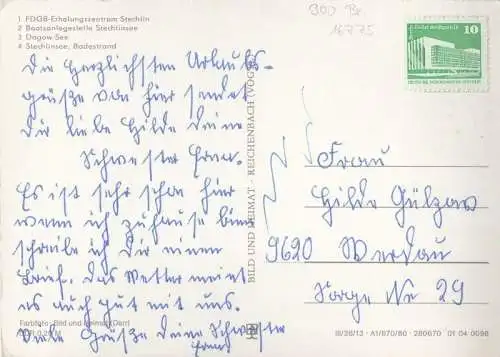 1 FDGB-Erholungszentrum Stechlin
2 Bootsanlegestelle Stechlinsee
3 Dagow-See
4 Stechlinsee, Badestrand
Die herzlichsten Urlaubs-
grüße von hier sendet
Dir liebe Hilde Deine
Schwester Erna.
Es ist sehr schön hier
wenn ich zuhause bin
schreibe ich Dir einen
Brief. Das Wetter meint
es auch gut mit uns.
Viele Grüße Deine Schwester
Erna
Farbfoto: Bild und Heimat
0,20 M
BILD UND HEIMAT · REICHENBACH (VOGTL
16775
10
Frau
Hilde Gülzow
9620 Werdau
Sorge Nr 29
III/26/13 · A1/670/80 · 280670 01 04 0098